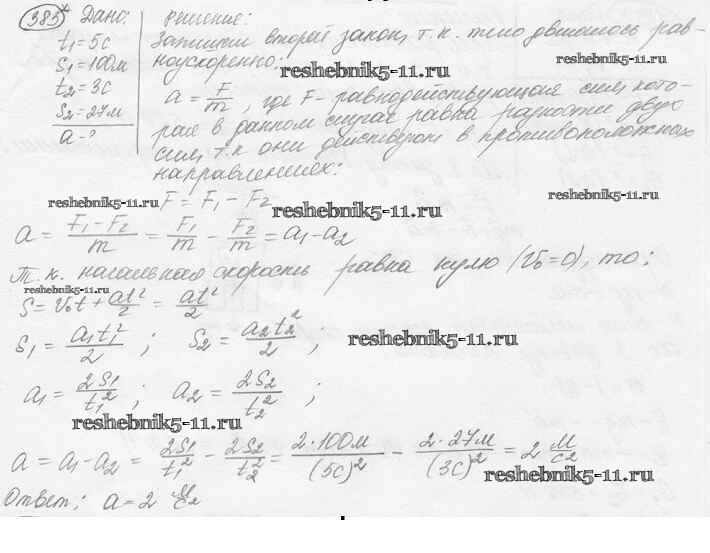 385* Дано: Решение:
t₁=5с Запишем второй закон, т.к. тело двигалось рав-
S₁=100м ноускоренно:
reshebnik5-11.ru
reshebnik5-11.ru
t₂=3с
S₂=27м a = F/m, где F- равнодействующая сил, кото-
a-? рая в данном случае равна разности двух
сил, т.к они действуют в противоположных
направлениях:
reshebnik5-11.ru F = F₁ - F₂ reshebnik5-11.ru
reshebnik5-11.ru
a = (F₁-F₂)/m = F₁/m - F₂/m = a₁-a₂
Т.к. начальная скорость равна нулю (V₀=0), то:
reshebnik5-11.ru
S= V₀t + at²/2 = at²/2
S₁ = a₁t₁²/2 ; S₂ = a₂t₂²/2 , reshebnik5-11.ru
a₁ = 2S₁/t₁² ; a₂ = 2S₂/t₂² ;
reshebnik5-11.ru
a = a₁-a₂ = 2S₁/t₁² - 2S₂/t₂² = 2·100м/(5с)² - 2·27м/(3с)² = 2 м/с²
reshebnik5-11.ru
Ответ: a=2 м/с²